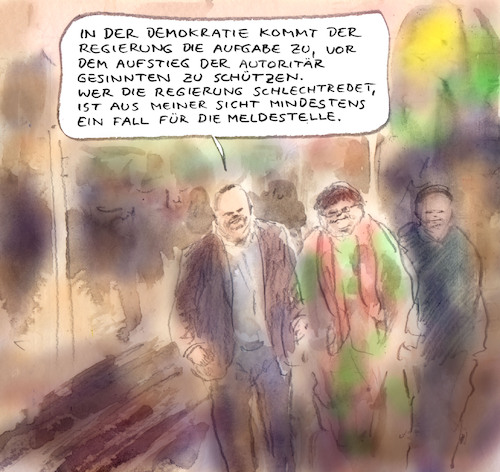 IN DER DEMOKRATIE KOMMT DER
REGIERUNG DIE AUFGABE ZU, VOR
DEM AUFSTIEG DER AUTORITÄR
GESINNTEN ZU SCHÜTZEN.
WER DIE REGIERUNG SCHLECHTREDET,
IST AUS MEINER SICHT MINDESTENS
EIN FALL FÜR DIE MELDESTELLE.